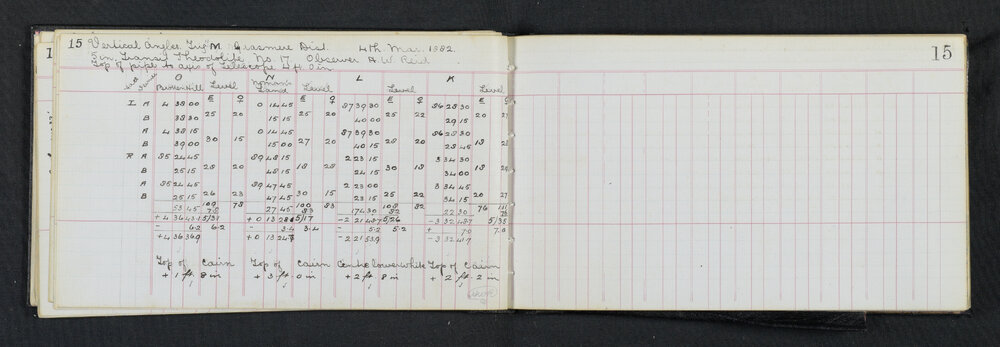 15 Vertical Angles Trig M. Grasmere Dist. 4th Mar. 1882.
5 in. Transit Theodolite No. 17 Observer A W Reid
Top of pipe to axis of Telescope 4 ft 0 in
15
O N L K
Broken Hill Level Noman's Land Level Level Level
E O E O E O E O
I A 4 38 00 0 14 45 87 39 30 86 28 30
25 20 25 20 25 22 20
B 38 30 15 15 40 00 29 15
A 4 38 15 0 14 45 87 39 30 86 28 30
30 15 27 20 28 20 18
B 39 00 15 00 40 15 28 45
R A 85 24 45 89 48 15 2 23 15 3 34 30
28 20 18 28 30 18 18
B 25 15 48 15 24 15 34 00
A 85 24 45 89 47 45 2 23 00 3 34 45
26 23 30 15 25 22 20
B 25 15 47 45 23 15 34 15
53 45 109 78 27 45 100 83 17 4 30 108 82 22 30 76
78 83 82
+4 36 43.1 5/31 +0 13 28.1 5/17 -2 21 48.7 5/26 -3 32 48.7 5/35
- 6.2 6.2 - 3.4 3.4 - 5.2 5.2 + 7.0 7.0
+4 36 36.9 +0 13 24.7 -2 21 53.9 -3 32 41.7
Top of Cairn Top of Cairn Centre lower white Top of Cairn
+ 1 ft. 8 in + 3 ft. 0 in + 2 ft 8 in + 2 ft. 2 in